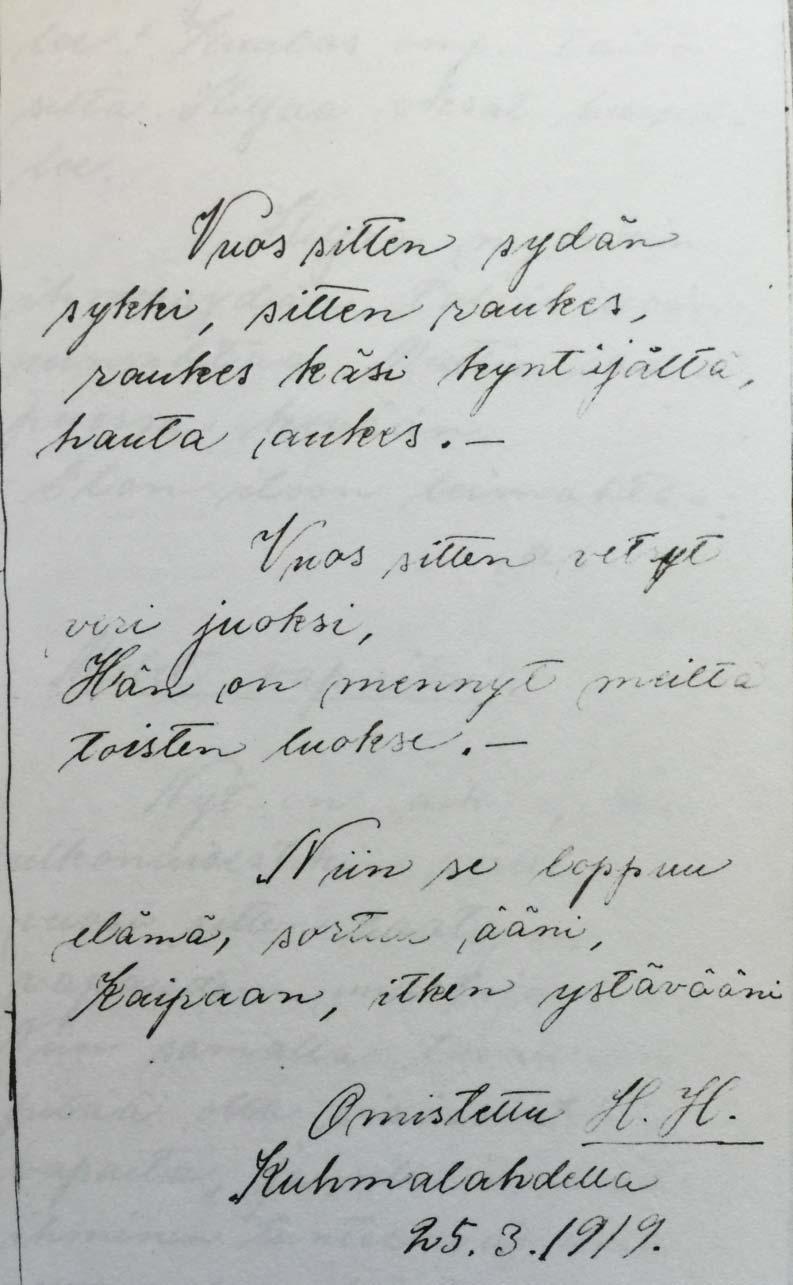 Vuos sitten sydän
sykki, sitten raukes,
raukes käsi kyntijältä,
hauta aukes. —
Vuos sitten vetryt
veri juoksi,
Hän on mennyt meiltä
toisten luokse. —
Niin se loppuu
elämä, sortuu ääni,
Kaipaan, itken ystävääni
Omistettu H. H.
Kuhmalahdella
25. 3. 1919.